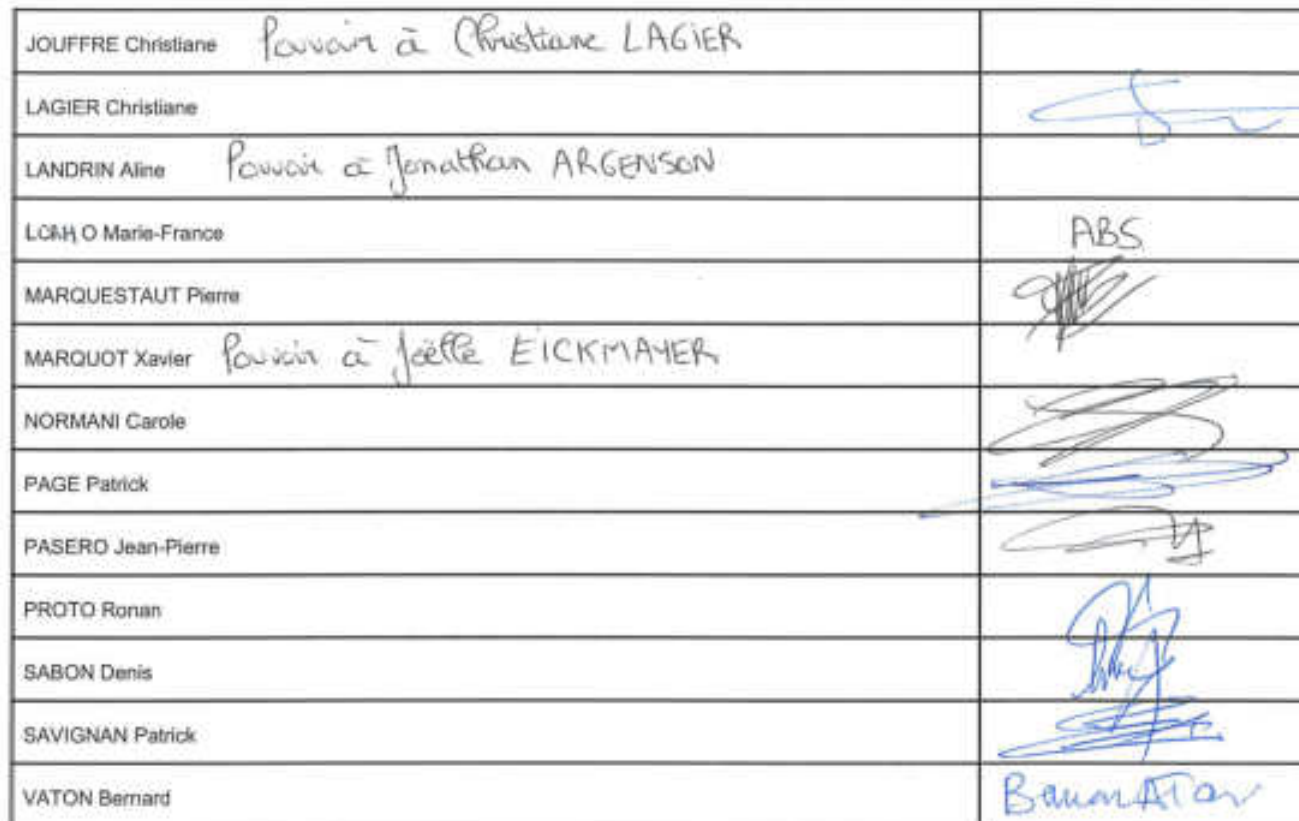 JOUFFRE Christiane Pouvoir à Christiane LAGIER
LAGIER Christiane
LANDRIN Aline Pouvoir à Jonathan ARGENSON
Marie-France ABS
MARQUESTAUT Pierre
MARQUOT Xavier Pouvoir à Joëlle EICKMAYER
NORMANI Carole
PAGE Patrick
PASERO Jean-Pierre
PROTO Ronan
SABON Denis
SAVIGNAN Patrick
VATON Bernard